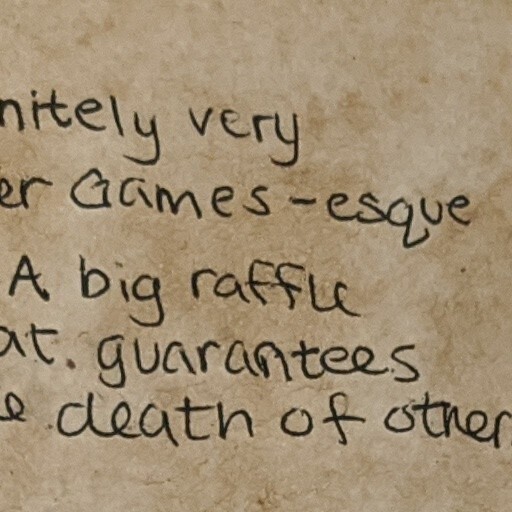 nitely very
er Games-esque
A big raffle
at. guarantees
e death of other